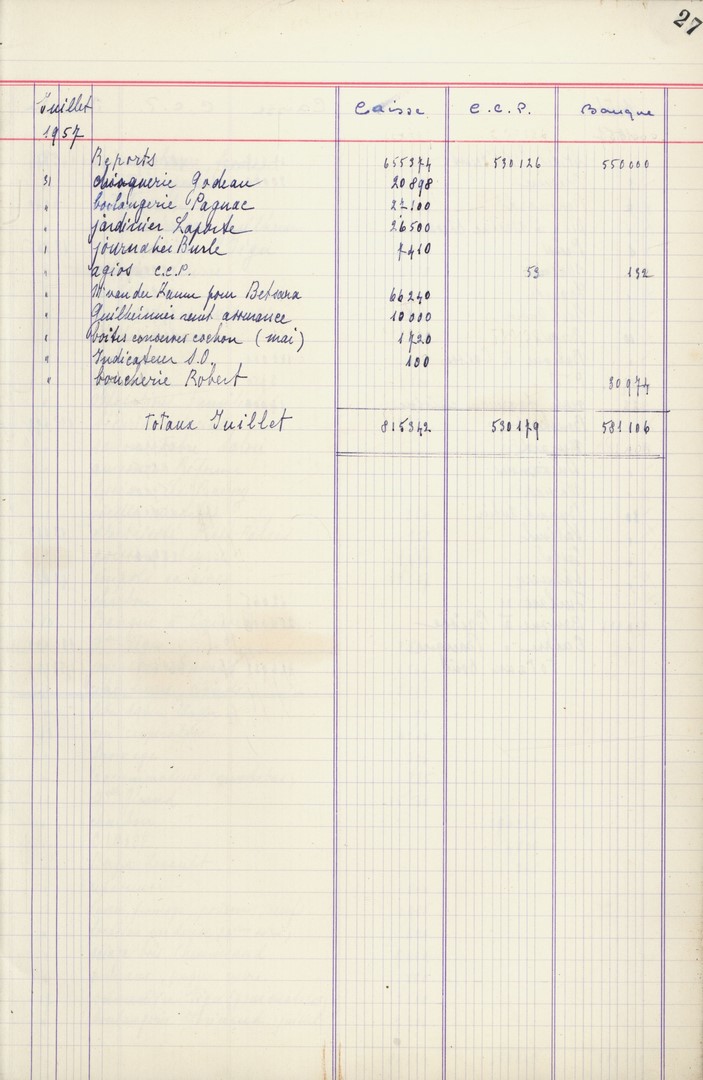 27
Juillet Caisse C.C.P. Banque
1957
Reports 655374 530126 550000
31 droguerie Godeau 20898
" boulangerie Pagnac 27100
" jardinier Laporte 26500
" journalier Burle 7410
" agios C.C.P. 53 132
" van der pour 66240
" assurance 10000
" boîtes conserves cochon (mai) 1720
" Indicateur S.O. 100
" boucherie Robert 30974
Totaux Juillet 815342 530179 581106